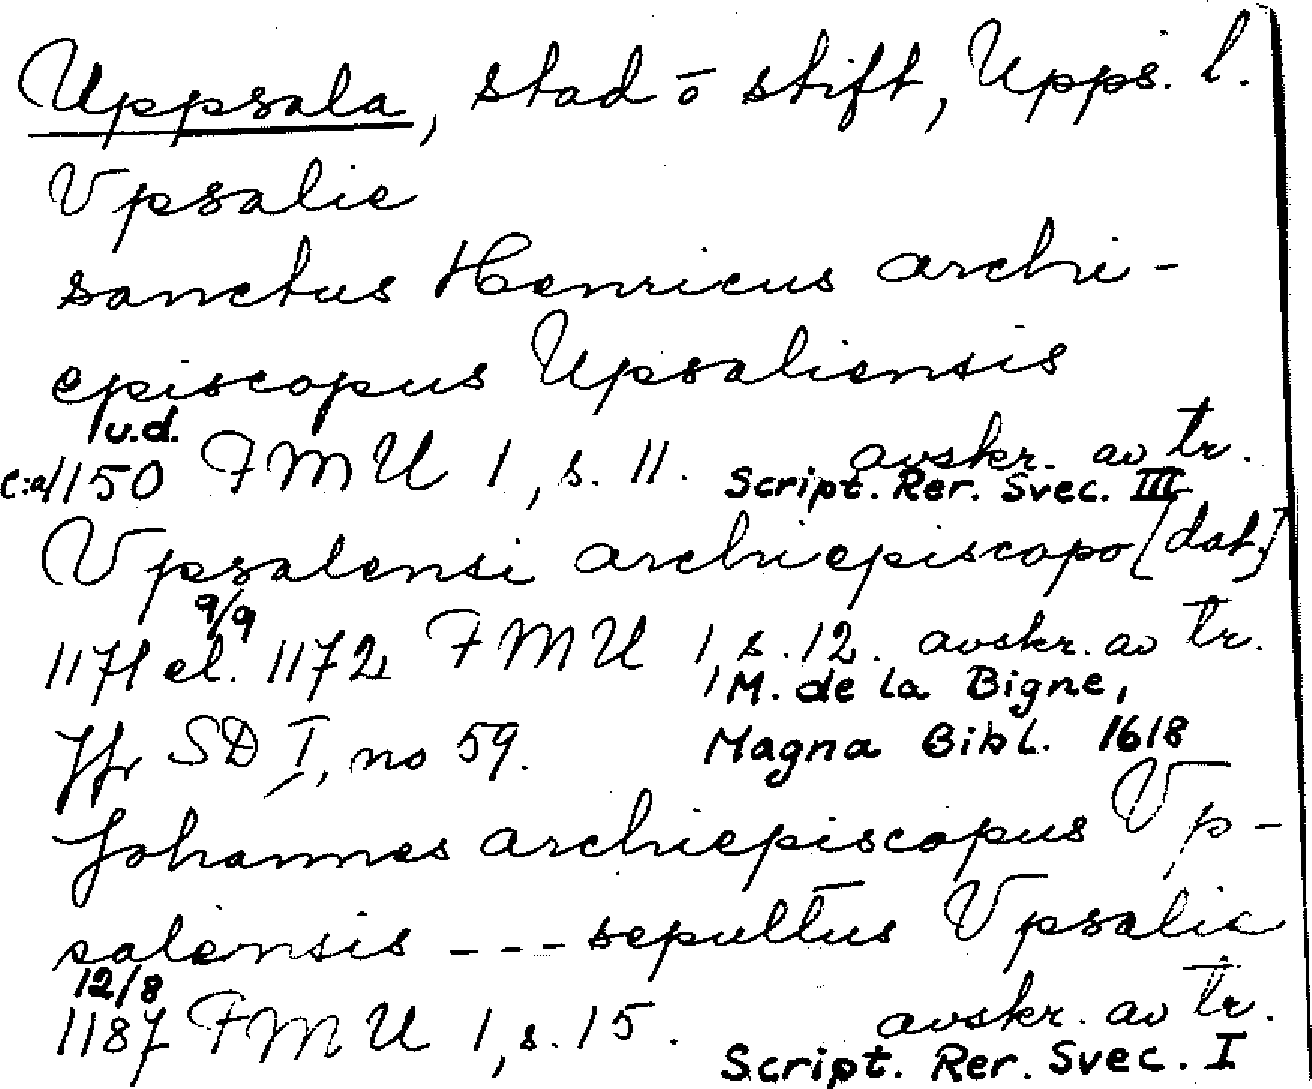 Uppsala, stad o stift, Upps. l.
Vpsalie
sanctus Henricus archi-
episcopus Upsaliensis
u.d.
c:a 1150 FMU 1, s. 11. avskr. av tr.
Script. Rer. Svec. III
Vpsalensi archiepiscopo [dat.]
9/9
1171 el. 1172 FMU 1, s. 12. avskr. av tr.
M. de la Bigne,
Jfr SD I, no 59. Magna Bibl. 1618
Johannes archiepiscopus Vp-
salensis --- sepultus Vpsalie
12/8
1187 FMU 1, s. 15. avskr. av tr.
Script. Rer. Svec. I